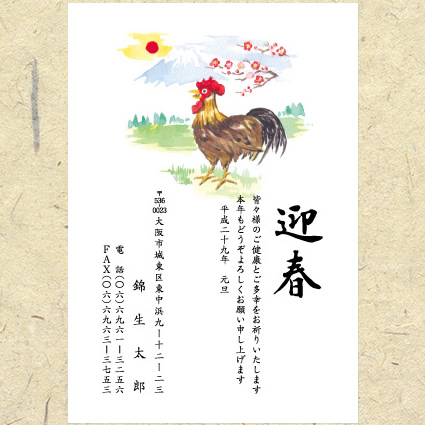 迎春
皆々様のご健康とご多幸をお祈りいたします
本年もどうぞよろしくお願い申し上げます
平成二十九年 元旦
〒536-0023
大阪市城東区東中浜九ー十二ー二三
錦生太郎
電話(〇六)六九六一ー三二五六
FAX(〇六)六九六三ー三七五三